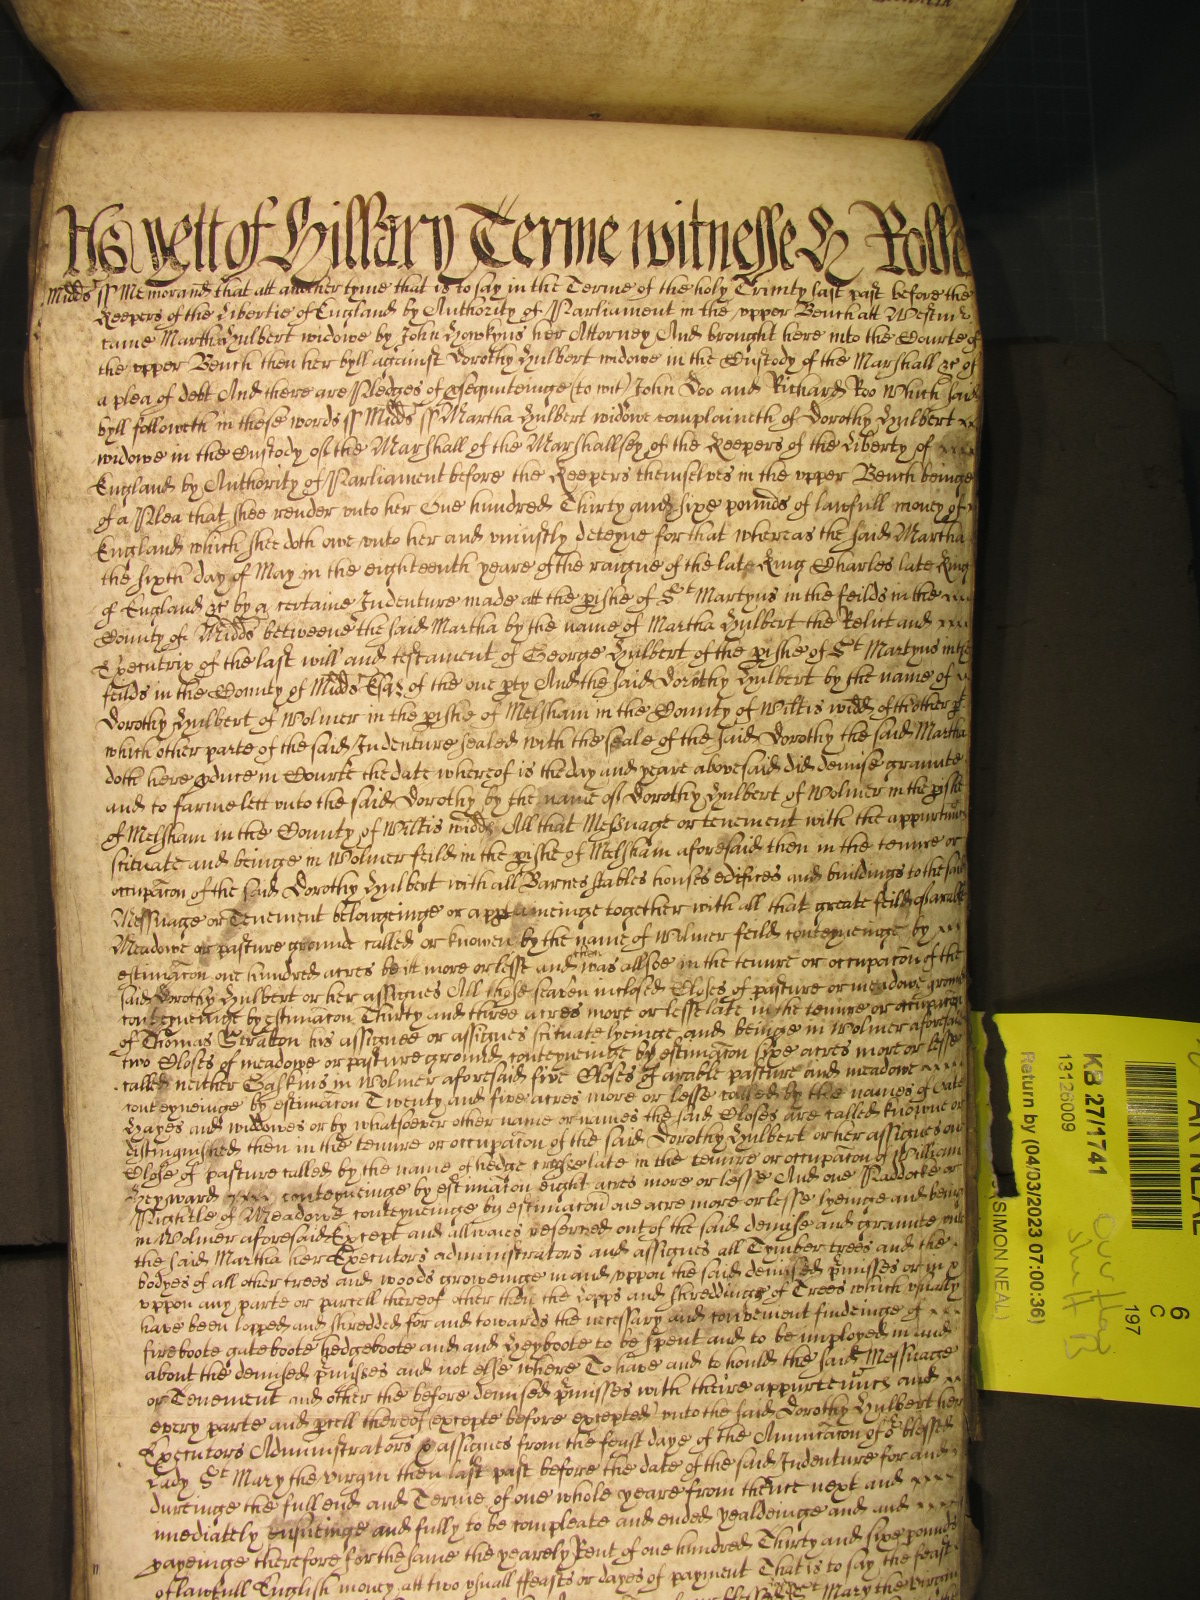 As yett of Hillary Terme witnesse H Rolle
Midds ss Memorand that att another tyme that is to say in the Terme of the holy Trinity last past before the
Keepers of the Libertie of England by Authority of Parliament in the upper Bench att Westmr
came Martha Hulbert widowe by John Howkyns her Attorney And brought here into the Courte of
the upper Bench then her byll against Dorothy Hulbert widowe in the Custody of the Marshall &c of
a plea of debt And there are Pledges of psequuteinge (to wit) John Doo and Richard Roo Which said
byll followeth in these words ss Midds ss Martha Hulbert widowe complaineth of Dorothy Hulbert
widowe in the Custody of the Marshall of the Marshallsey of the Keepers of the Liberty of
England by Authority of Parliament before the Keepers themselves in the upper Bench beinge
of a Plea that shee render unto her One hundred Thirty and sixe pounds of lawfull money of
England which shee doth owe unto her and uniustly deteyne for that whereas the said Martha
the sixth day of May in the eighteenth yeare of the raigne of the late King Charles late King
of England &c by a certaine Indenture made att the pishe of St Martyns in the feilds in the
County of Midds betweene the said Martha by the name of Martha Hulbert the Relict and
Executrix of the last will and testament of George Hulbert of the pishe of St Martyns in the
feilds in the County of Midds Esqr of the one pty And the said Dorothy Hulbert by the name of
Dorothy Hulbert of Wolmer in the pishe of Melsham in the County of Wiltis widd of the other pt
which other parte of the said Indenture sealed with the seale of the said Dorothy the said Martha
doth here pduce in Courte the date whereof is the day and yeare abovesaid did demise graunte
and to farme lett unto the said Dorothy by the name of Dorothy Hulbert of Wolmer in the pishe
of Melsham in the County of Wiltis widd All that Messuage or tenement with the appurtnncs
scituate and beinge in Wolmer feild in the pishe of Melsham aforesaid then in the tenure or
occupacon of the said Dorothy Hulbert with all Barnes stables houses edifices and buildings to the said
Messuage or Tenement belongeinge or apptaineinge together with all that greate feild of arable
Meadowe or pasture ground called or knowen by the name of Wolmer feild conteyneinge by
estimacon one hundred acres be it more or lesse and then was allsoe in the tenure or occupacon of the
said Dorothy Hulbert or her assignes All those seaven inclosed Closes of pasture or meadowe ground
conteyneinge by estimacon Thirty and three acres more or lesse late in the tenure or occupacon
of Thomas Stratton his assignee or assignes scituate lyeinge and beinge in Wolmer aforesaid
two Closes of meadowe or pasture ground conteyneinge by estimacon sixe acres more or lesse
called neither Gaskins in Wolmer aforesaid five Closes of arable pasture and meadowe
conteyneinge by estimacon Twenty and five acres more or lesse called by the names of
Hayes and widdowes or by whatsoever other name or names the said Closes are called knowne or
distinguished then in the tenure or occupacon of the said Dorothy Hulbert or her assignes one
Close of pasture called by the name of hedge late in the tenure or occupacon of William
Heyward conteyneinge by estimacon eight acres more or lesse And one Paddocke or
Pightle of Meadowe conteyneinge by estimacon one acre more or lesse lyeinge and beinge
in Wolmer aforesaid Except and allwaies reserved out of the said demise and graunte unto
the said Martha her Executors administrators and assignes all Tymber trees and the
bodyes of all other trees and woods groweinge in and uppon the said demised pmisses or in or
uppon any parte or parcell thereof other then the lopps and shreddings of Trees which usually
have been lopped and shredded for and towards the necessary and convenient findeinge of
fireboote gateboote hedgeboote and and Heyboote to be spent and to be imployed in and
about the demised pmisses and not else where To have and to hould the said Messuage
or Tenement and other the before demised pmisses with theire appurtenncs and
every parte and pcell thereof (excepte before excepted) unto the said Dorothy Hulbert her
Executors Administrators & assignes from the feast daye of the Annuncacon of or blessed
Lady St Mary the virgin then last past before the date of the said Indenture for and
dureinge the full end and Terme of one whole yeare from thence next and
imediately ensueinge and fully to be compleate and ended yealdeinge and and
payeinge therefore for the same the yearely Rent of one hundred Thirty and sixe pounds
of lawfull English money att two usuall ffeasts or dayes of payment That is to say the feast
Mary the virgin
KB 27/1741
13126009
Return by (04/03/2023 07:00:36)
SIMON NEAL)
6
C
197